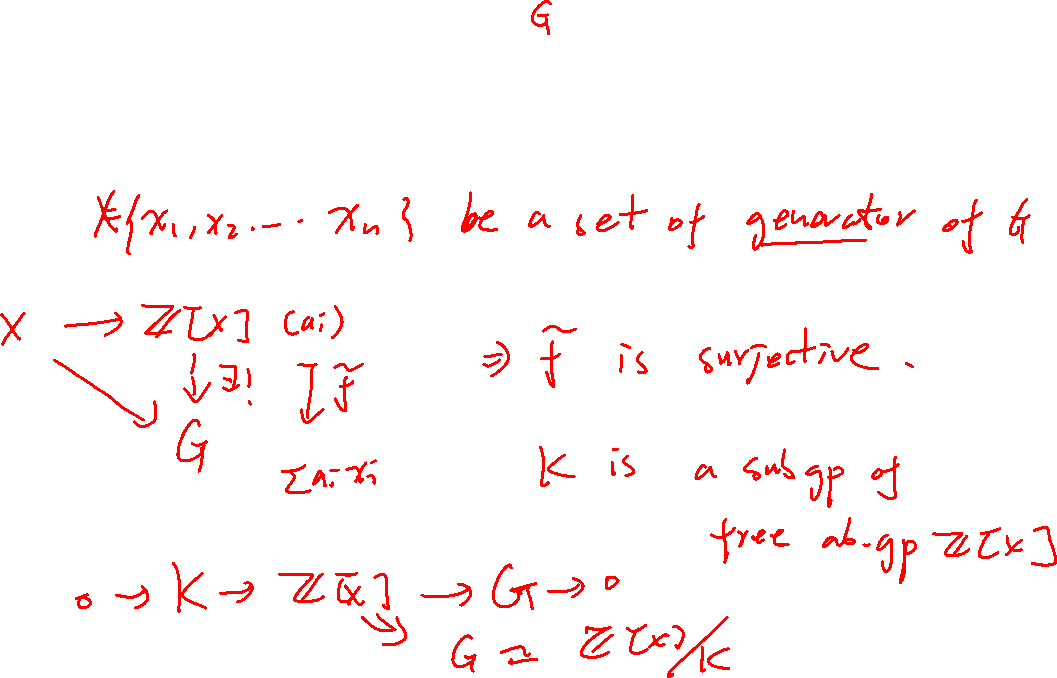 G
X={x₁, x₂ .-- · xₙ } be a set of generator of G
X → ℤ[X] (aᵢ)
↓∃! ↓f̃ ⇒ f̃ is surjective .
G Σaᵢxᵢ K is a subgp of
free ab-gp ℤ[X]
0 → K → ℤ[X] → G → 0
G ≃ ℤ[X]/K